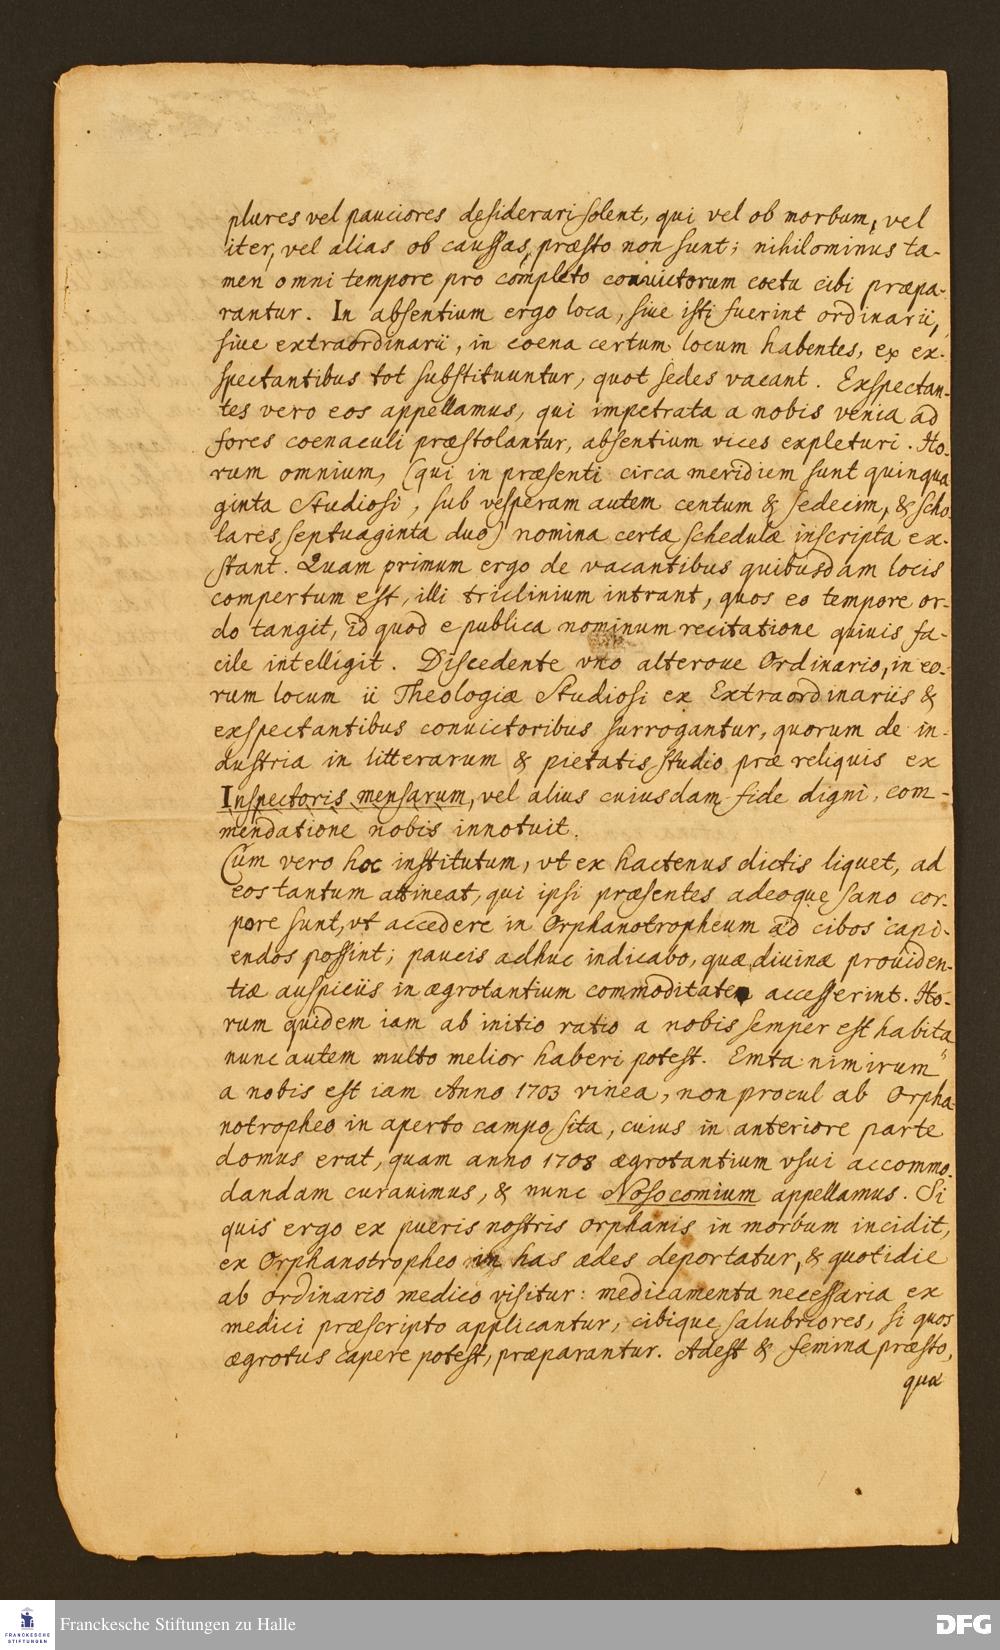 plures vel pauciores desiderari solent, qui vel ob morbum, vel
iter, vel alias ob caussas, præsto non sunt; nihilominus ta-
men omni tempore pro completo conuictorum coetu cibi præpa-
rantur. In absentium ergo loca, siue isti fuerint ordinarii,
siue extraordinarii, in coena certum locum habentes, ex ex-
spectantibus tot substituuntur, quot sedes vacant. Exspectan-
tes vero eos appellamus, qui impetrata a nobis venia ad
fores coenaculi præstolantur, absentium vices expleturi. Ho-
rum omnium, (qui in præsenti circa meridiem sunt quinqua
ginta Studiosi, sub vesperam autem centum & sedecim, & scho-
lares septuaginta duo) nomina certæ schedulæ inscripta ex-
stant. Quam primum ergo de vacantibus quibusdam locis
compertum est, illi triclinium intrant, quos eo tempore or-
do tangit, id quod e publica nominum recitatione quiuis fa-
cile intelligit. Discedente vno alteroue Ordinario, in eo-
rum locum ii Theologiæ Studiosi ex Extraordinariis &
exspectantibus conuictoribus surrogantur, quorum de in-
dustria in litterarum & pietatis studio præ reliquis ex
Inspectoris mensarum, vel alius cuiusdam fide digni, com-
mendatione nobis innotuit.
Cum vero hoc institutum, vt ex hactenus dictis liquet, ad
eos tantum attineat, qui ipsi præsentes adeoque sano cor-
pore sunt, vt accedere in Orphanotropheum ad cibos capi-
endos possint; paucis adhuc indicabo, quæ diuinæ prouiden-
tiæ auspiciis in ægrotantium commoditatem accesserint. Ho-
rum quidem iam ab initio ratio a nobis semper est habita
nunc autem multo melior haberi potest. Emta nimirum
a nobis est iam Anno 1703 vinea, non procul ab Orpha-
notropheo in aperto campo sita, cuius in anteriore parte
domus erat, quam anno 1708 ægrotantium vsui accommo-
dandam curauimus, & nunc Nosocomium appellamus. Si
quis ergo ex pueris nostris orphanis in morbum incidit,
ex Orphanotropheo in has ædes deportatur, & quotidie
ab ordinario medico visitur: medicamenta necessaria ex
medici præscripto applicantur, cibique salubriores, si quos
ægrotus capere potest, præparantur. Adest & femina præsto,
quæ
Franckesche Stiftungen zu Halle
FRANCKESCHE
STIFTUNGEN
DFG